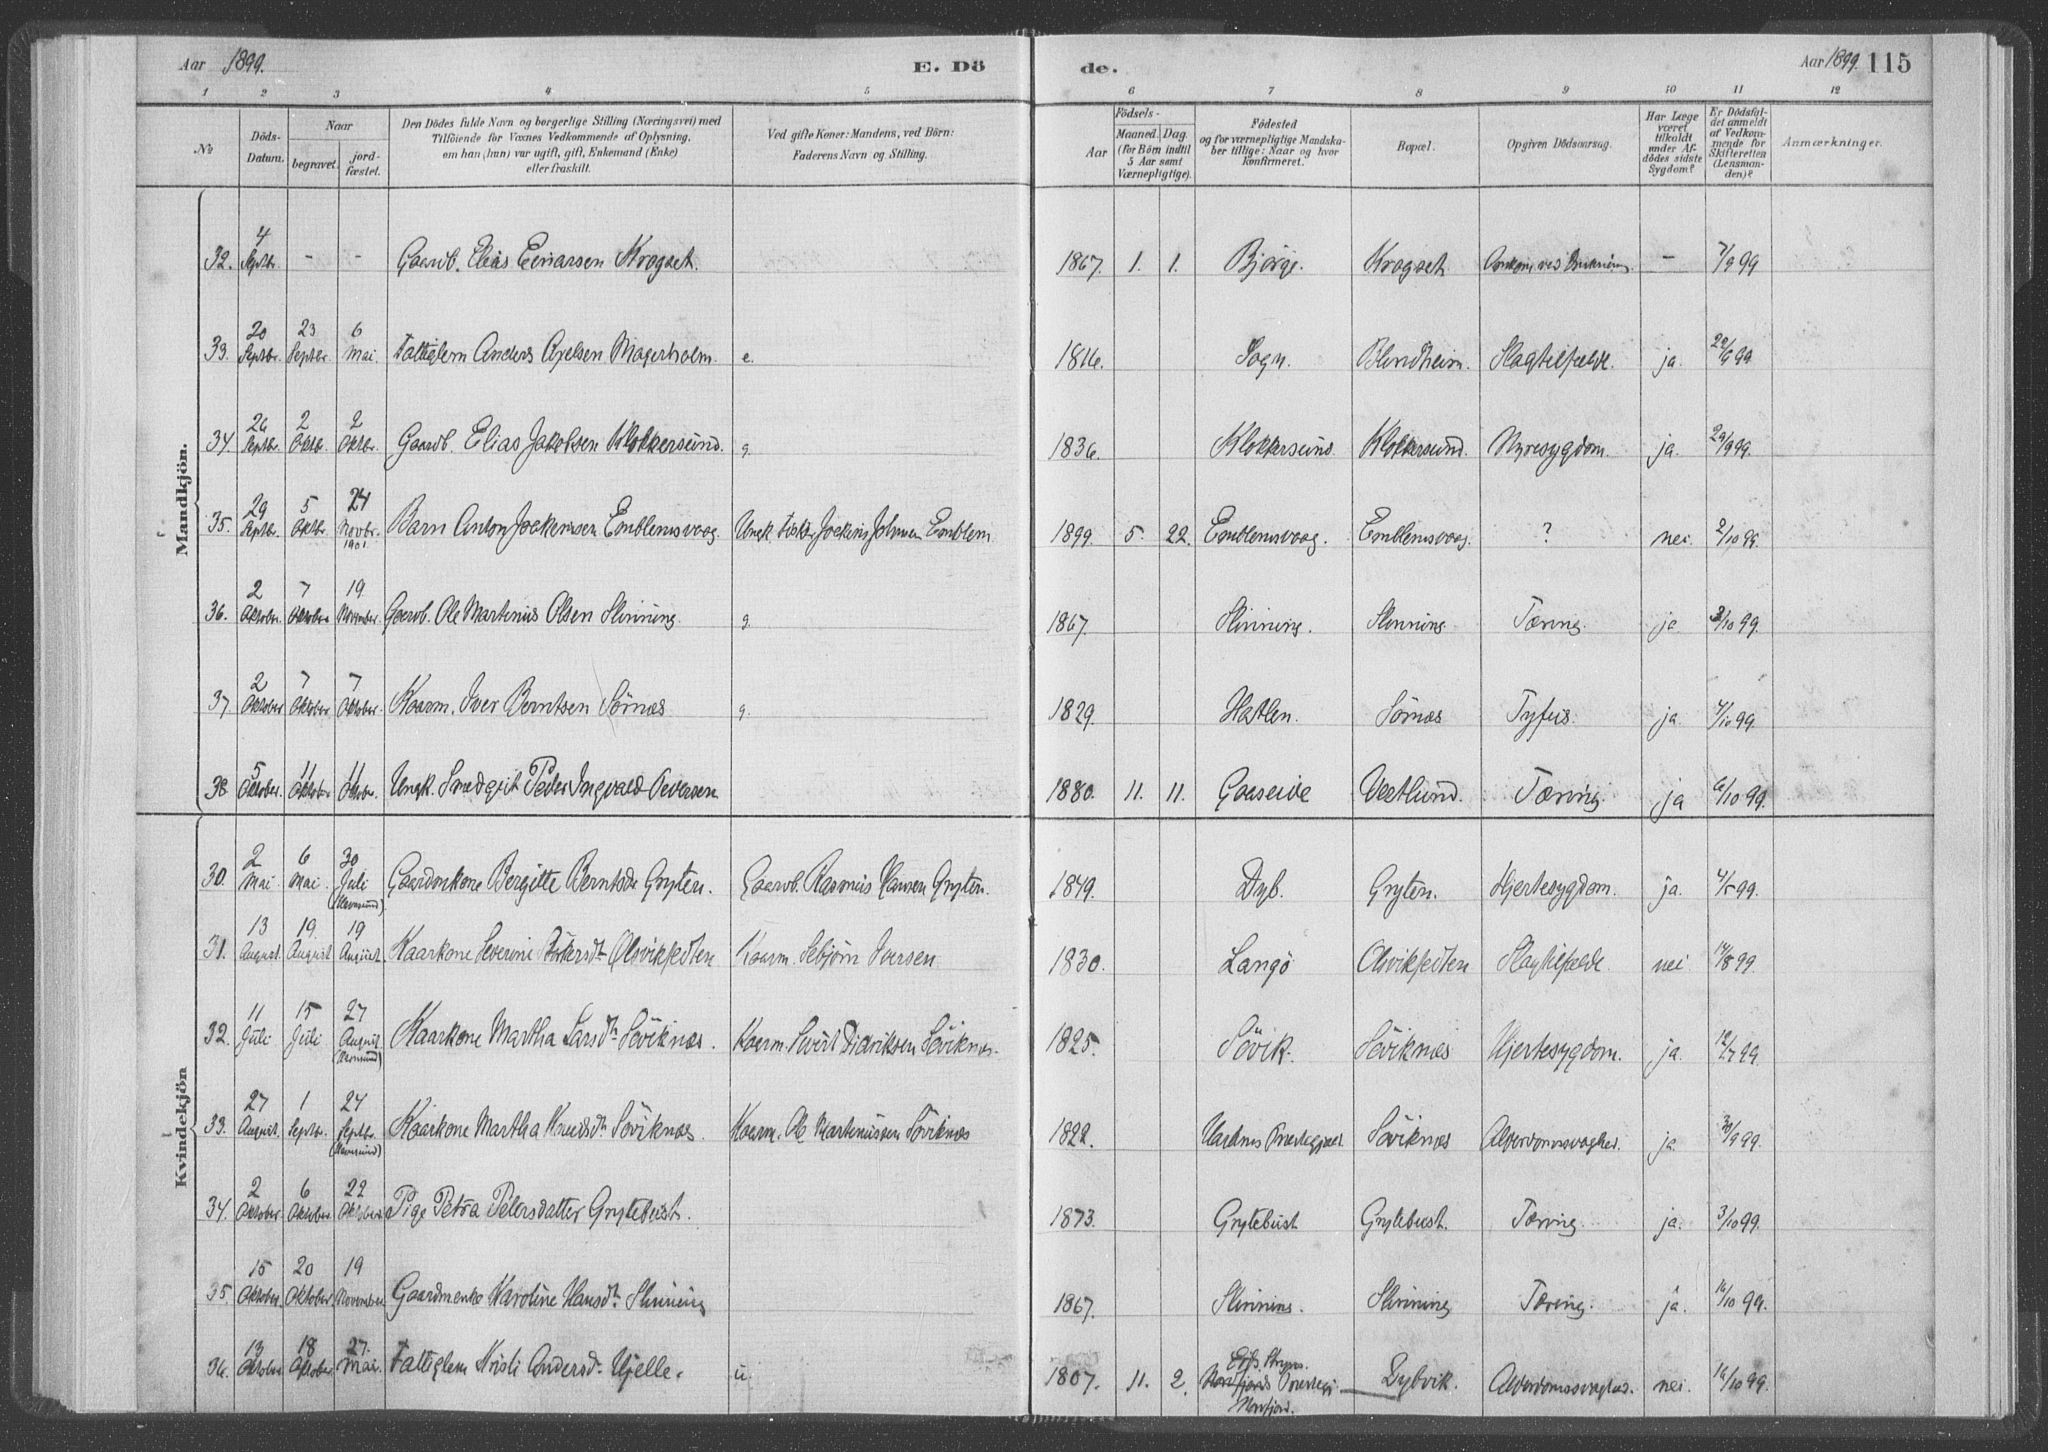 Aar 1899.
E. Dö
de.
Aar 1899. 115
1 2 3 4 5 6 7 8 9 10 11 12
No
Döds-Datum.
Naar
begravet.
jord-fæstet.
Den Dödes fulde Navn og borgerlige Stilling (Næringsvei) med
Tilföiende for Voxnes Vedkommende af Oplysning,
om han (hun) var ugift, gift, Enkemand (Enke)
eller fraskilt.
Ved gifte Koner: Mandens, ved Börn:
Faderens Navn og Stilling.
Födsels-
Aar
Maaned. Dag.
(for Börn indtil
5 Aar samt
Værnepligtige).
Födested
og for værnepligtige Mandska-
ber tillige: Naar og hvor
konfirmeret.
Bopæl.
Opgiven Dödsaarsag.
Har Læge
været
tilkaldt
under Af-
dödes sidste
Sygdom?
Er Dödsfal-
det anmeldt
af Vedkom-
mende for
Skifteretten
(Lensman-
den)?
Anmærkninger.
Mandkjön.
32. 4 Septbr. - - Gaardb. Elias Einarsen Krogset. 1867. 1. 1. Bjørge. Krogset Omkom ved Drukning. - 7/9 99
33. 20 Septbr. 23 Septbr. 6 Mai. Fattiglem Anders Axelsen Magerholm. e. 1816. Sogn. Blindheim. Slagtilfælde. ja. 22/9 99
34. 26 Septbr. 2 Oktb. 2 Oktbr. Gaardb. Elias Jakobsen Klokkersund. g. 1836. Klokkersund Klokkersund. Nyresygdom. ja. 29/9 99.
35. 29 Septbr. 5 Oktbr. 24 Novbr. 1901 Barn Anton Jockumsen Emblemsvaag. Ungk. Fisker Emblem. 1899. 5. 22. Emblemsvaag. Emblemsvaag. ? nei. 2/10 99.
36. 2 Oktober. 7 Oktober 19. November. Gaardb. Ole Martinus Olsen Slinning. g. 1867. Slinning. Slinning Tæring. ja 3/10 99.
37. 2 Oktober 7 Oktober 7 Oktober. Kaarm. Iver Berntsen Sörnes g. 1829. Hatlen. Sörnes Tyfus. ja. 4/10 99.
38 5 Oktober. 11 Oktober 11 Oktbr. Ungk. Peder Ingvald Pedersen 1880. 11. 11. Gaaseide Vestlund. Tæring. ja 6/10 99.
Kvindekjön
30. 2 Mai. 6 Mai. 30 Juli (Havnsund). Gaardmkone Bergitte Berntsdr Gryten. Gaardb. Rasmus Hansen Gryten. 1849. Dyb. Gryten. Hjertesygdom. ja. 4/5 99.
31. 13 August. 19. August 19 August Kaarkone Severine Olsvikfedten Kaarm. Sebjörn Iversen 1830. Langö Olsvikfedten Slagtilfælde nei 14/8 99.
32. 11 Juli 15 Juli 27 August (Havnsund) Kaarkone Martha Larsdtr Söviknes. Kaarm. Sivert Didriksen Söviknes. 1825. Sövik. Söviknes Hjertesygdom. ja. 12/7 99.
33. 27 August. 1 Septbr. 24 Septbr. (Havnsund) Kaarkone Martha Knudsdtr Söviknes. Kaarm. Ole Martinussen Söviknes 1822. Præstegjæld Söviknes Alderdomssvaghed. ja. 30/9 99.
34. 2 Oktober. 6 Oktober 22 Oktober. Pige Petra Petersdatter Grytebust. 1873. Grytebust Grytebust. Tæring. ja. 3/10 99.
35. 15 Oktober 20 Oktober. 19 November Gaardmenke Karoline Hansdtr. Slinning 1867. Slinning. Slinning Tæring. ja. 16/10 99.
36. 13 Oktober 18 Oktober 27. Mai. Fattiglem Kristi Andersdr. Hjelle. u. 1807. 11. 2. Eids, Stryns. Nordfjords Præstegj. Nordfjord. Dybvik. Alderdomssvaghed. nei. 16/10 99.